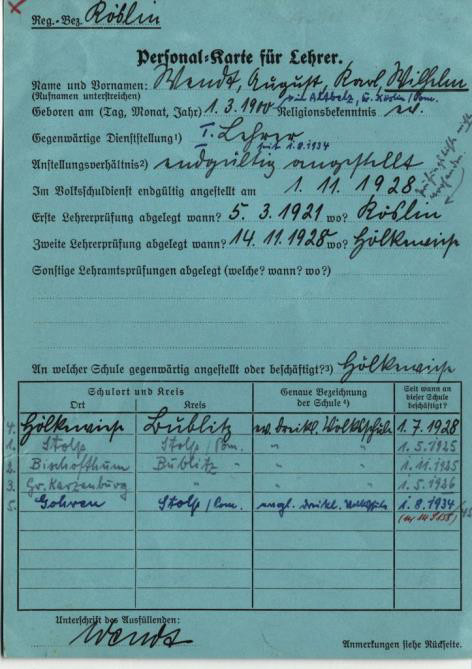 Reg.-Bez. Köslin
Personal-Karte für Lehrer.
Name und Vornamen: Wendt, August, Karl Wilhelm
(Rufnamen unterstreichen)
in Altbelz, Kr. Köslin/Pom.
Geboren am (Tag, Monat, Jahr) 1. 3. 1900 Religionsbekenntnis ev.
Gegenwärtige Dienststellung¹) I. Lehrer
seit 1.8.1934
Anstellungsverhältnis²) endgültig angestellt
Im Volksschuldienst endgültig angestellt am 1. 11. 1928
Erste Lehrerprüfung abgelegt wann? 5. 3. 1921 wo? Köslin
Zweite Lehrerprüfung abgelegt wann? 14. 11. 1928 wo? Hölkewiese
Sonstige Lehramtsprüfungen abgelegt (welche? wann? wo?)
An welcher Schule gegenwärtig angestellt oder beschäftigt?³) Hölkewiese
Schulort und Kreis
Ort Kreis Genaue Bezeichnung der Schule ⁴) Seit wann an dieser Schule beschäftigt?
4. Hölkewiese Bublitz ev. dreikl. Volksschule 1. 7. 1928
1. Stolp Stolp/Pom. " " 1. 5. 1925
2. Bischofthum Bublitz " " 1. 11. 1925
3. Gr. Karzenburg " " " 1. 5. 1926
5. Gohren Stolp/Pom. dreikl. Volksschule 1. 8. 1934
Unterschrift des Ausfüllenden:
Wendt
Anmerkungen siehe Rückseite.